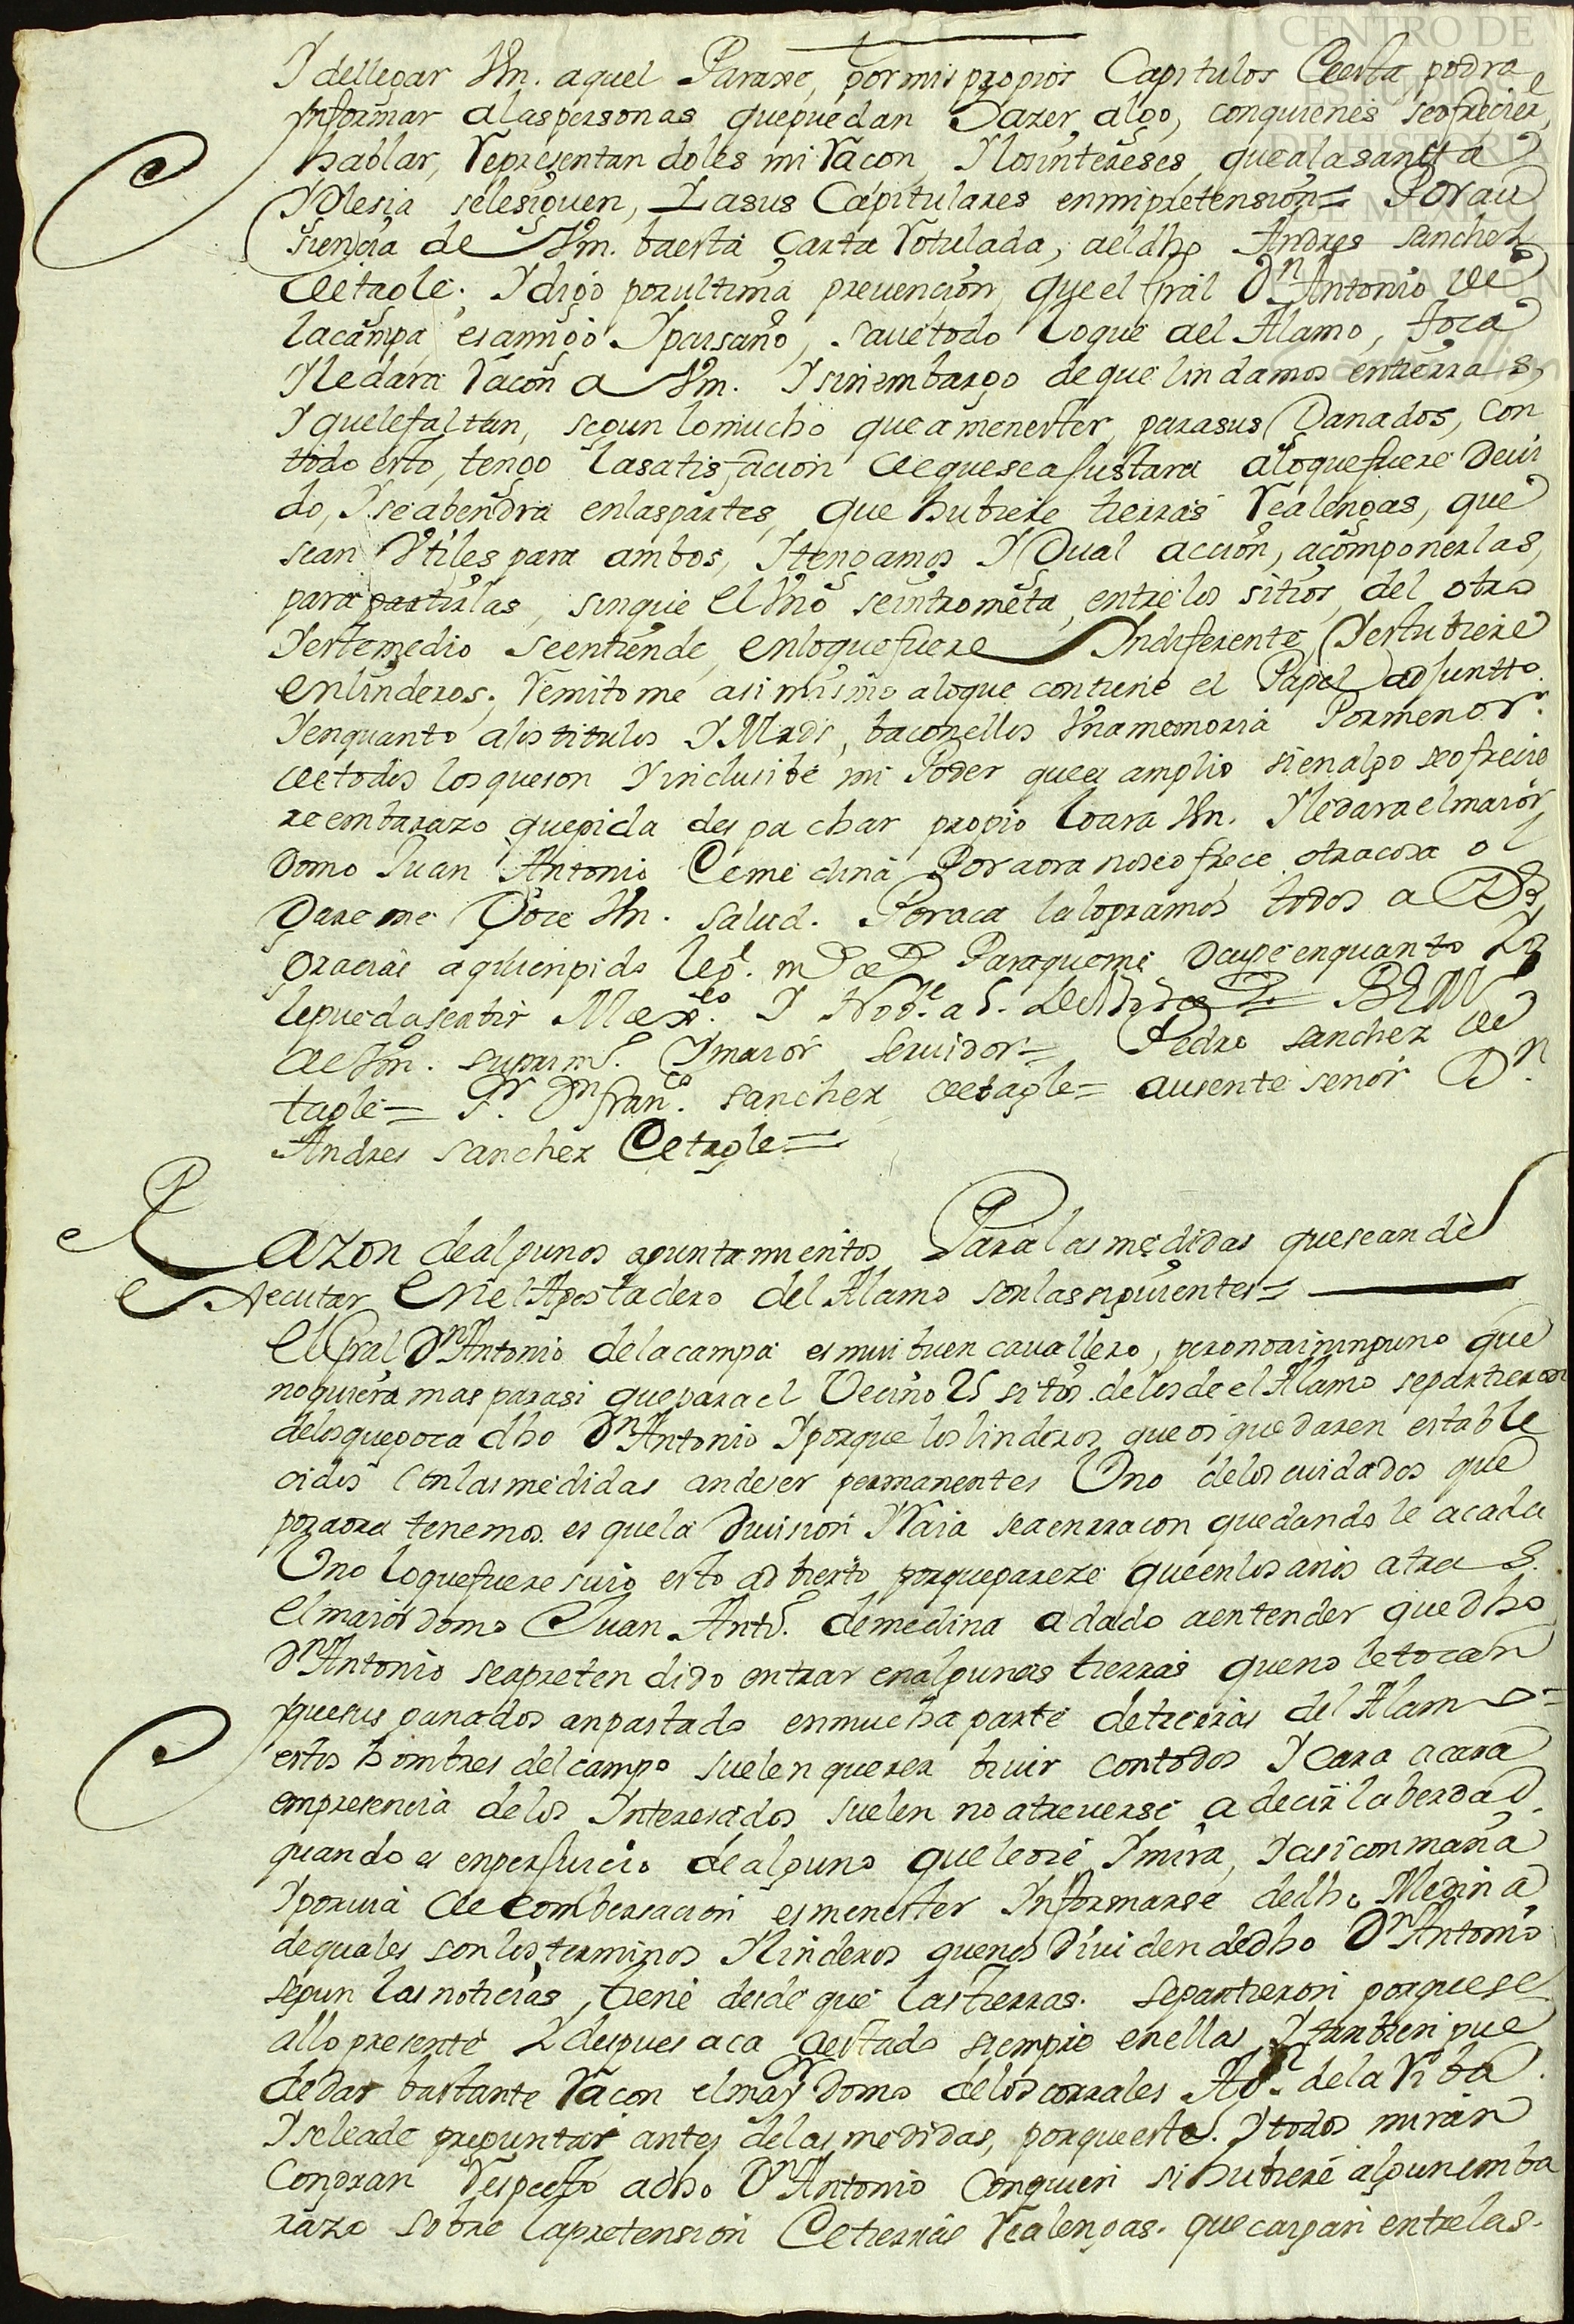 CENTRO DE
ESTUDIOS
DE HISTORIA
DE MEXICO
FUNDACIÓN
Carlos Slim
Y dellegar Vm. aquel Paraxe, por mis propios Capitulos Certa podra
ynformar alaspersonas quepuedan Dazer algo, conquienes seofreciere
hablar, Representandoles mi Racon, Ylosintereses, quealasanta
Yglesia selesiguen, Yasus Capitulares enmipretension= Por au
siencia de Vm. baesta Carta Rotulada, aeldho Andres sanchez
detagle. Ydigo porultima prevencion, que el Gral Dn. Antonio de
lacampa, esamigo Ypaisano, savetodo loque del Alamo, toca
Yledara Racon a Vm. Ysinembargo deque lindamos entierras,
Y quelefaltan, segun lomucho que a menester, parasus Ganados, con
todo esto, tengo lasatisfacion dequeseajustara aloquefuere Devi
do, Yseabendra enlaspartes, que hubiere tierras Realengas, que
sean Vtiles para ambos, Ytengamos YGual accion, acomponerlas,
para partirlas, sinque el Vno seintrometa, entrelos sitios, del otro
Yestemedio seentiende, enloquefuere Yndiferente, Yestubiere
enlinderos; Remitome asimismo aloque contiene el Papel adjuntto.
Yenquanto alos titulos YMrds, baconellos Vnamemoria Pormenor.
detodos losqueson Yinclusibe mi Poder quees amplio sienalgo seofrecie
re embarazo quepida despachar propio loara Vm. Yledara elmaior
Domo Juan Antonio Demedina Poraora noseofrece otracosa ol
Gareme Goce Vm. salud. Poraca lalogramos todos a Ds,
gracias aquienpido leg. ms. as. Paraqueme ocupe enquanto Yo
lepuedaserbir Mexco. Y Nobe. a 5. BLM
de Vm. suprimo. Ymaior servidor= Pedro sanchez de
tagle= Sr. Dn. franco. sanchez detagle= ausente señor Dn.
Andres sanchez Detagle=
Razon dealgunos apuntamientos Paralasmedidas queseande
executar Enel Apostadero del Alamo sonlassiguientes=
El Gral Dn. Antonio delacampa esmui buen cavallero, peronoaininguno que
noquiera mas parasi queparael Vecino 25 sitos. delosde el Alamo separtieron
delosquegoca dho Dn. Antonio Yporque loslinderos queoi quedaren estable
cidos Conlasmedidas andeser permanentes Uno delos cuidados que
poraora tenemos. es quela Division YRaia seaenrracon quedandole acada
Uno loquefuere suio esto adbierto porqueparece queenlosaños atras.
elmaiordomo Juan Anto. demedina adado aentender que dho
Dn. Antonio seapretendido entrar enalgunas tierras queno letocan
Yquesus ganados anpastado enmucha parte detierras del Alamo=
estos hombres del campo suelen querer bivir contodos Y cara acara
empresencia delos Yinteresados suelen noatreverse a decir laberdad.
quando es enperjuicio dealguno queleoie Ymira, Yasiconmaña
Yporvia decombersacion esmenester Ynformarse dedho Medina
dequales sonlosterminos Ylinderos quenos dividen dedho Dn. Antonio
segun lasnoticias, tiene desdeque lastierras. separtieron porquese
allo presente Ydespues aca aestado siempre enellas, Ytanbien pue
dedar bastante Racon elmayrdomo deloscorrales Ao. dela Riba
Yseleade preguntar antes delasmedidas, porqueeste. Y todos miran
Congran Respecto adho Dn. Antonio Conquien si hubiere algunemba
razo sobre lapretension Detierras Realengas. que caigan entrelas.